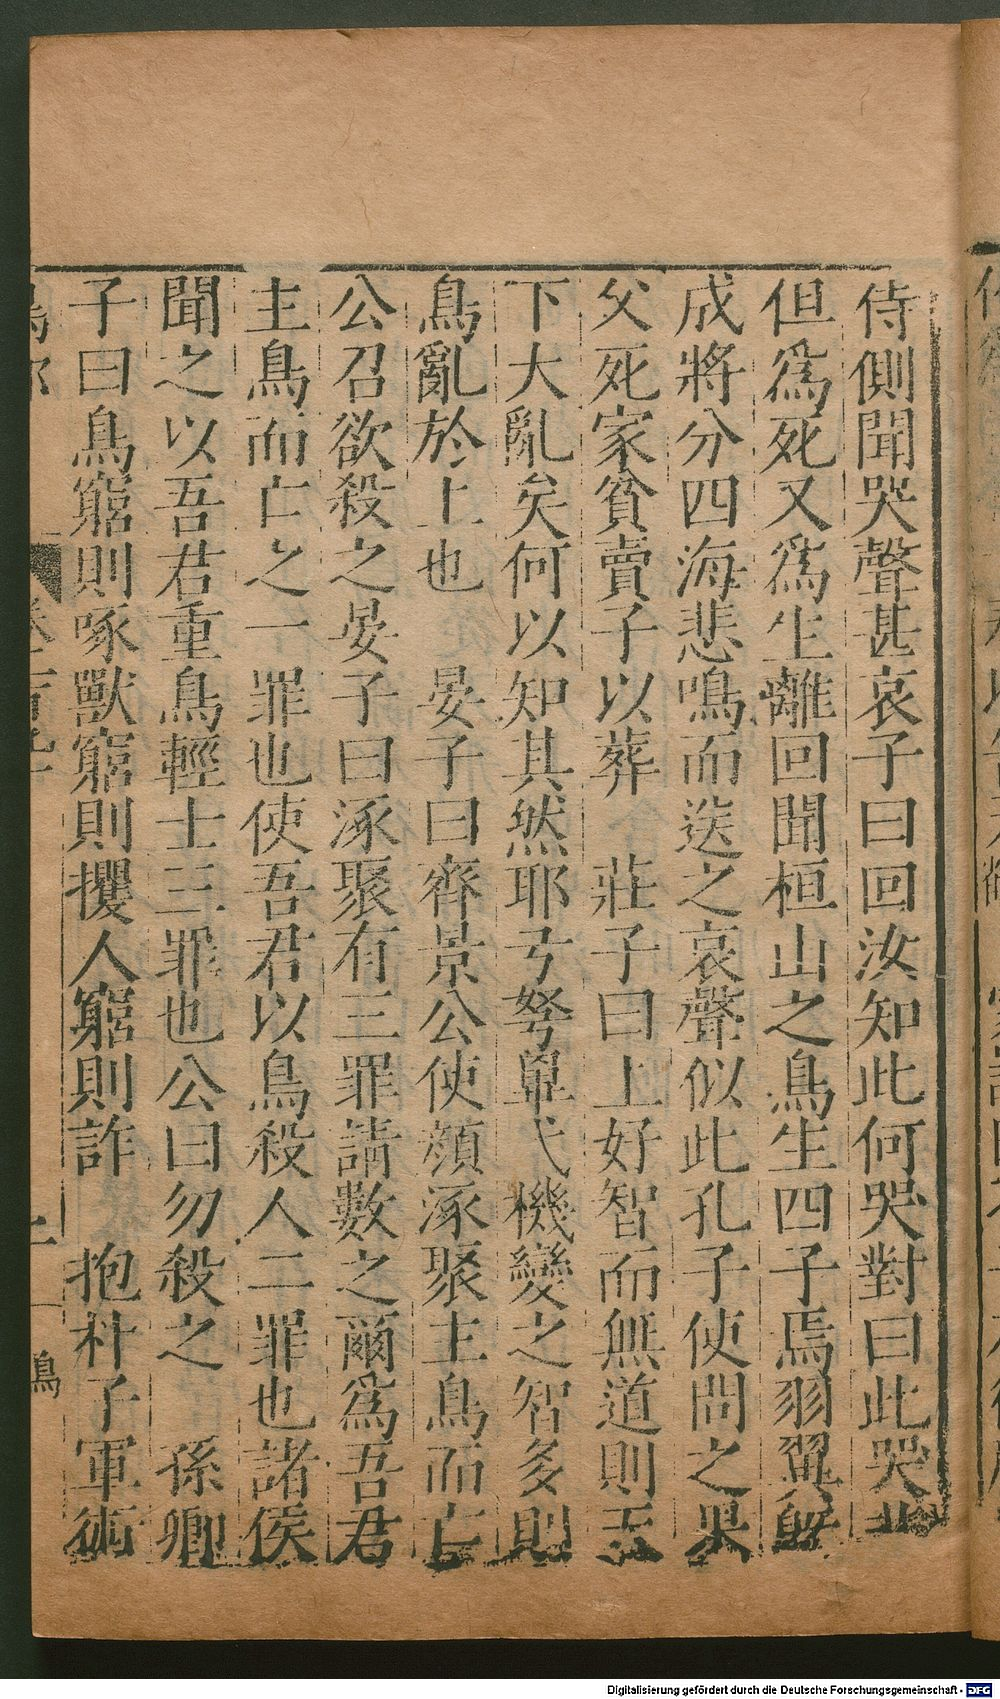 侍側聞哭聲甚哀子曰回汝知此何哭對曰此哭非
但爲死又爲生離回聞桓山之鳥生四子焉羽翼既
成將分四海悲鳴而送之哀聲似此孔子使問之果
父死家貧賣子以葬　莊子曰上好智而無道則天
下大亂矣何以知其然耶弓弩畢弋機變之智多則
鳥亂於上也　晏子曰齊景公使顔涿聚主鳥而亡
公召欲殺之晏子曰涿聚有三罪請數之爾爲吾君
主鳥而亡之一罪也使吾君以鳥殺人二罪也諸侯
聞之以吾君重鳥輕士三罪也公曰勿殺之　孫卿
子曰鳥窮則啄獸窮則攫人窮則詐　抱朴子軍術
Digitalisierung gefördert durch die Deutsche Forschungsgemeinschaft - DFG